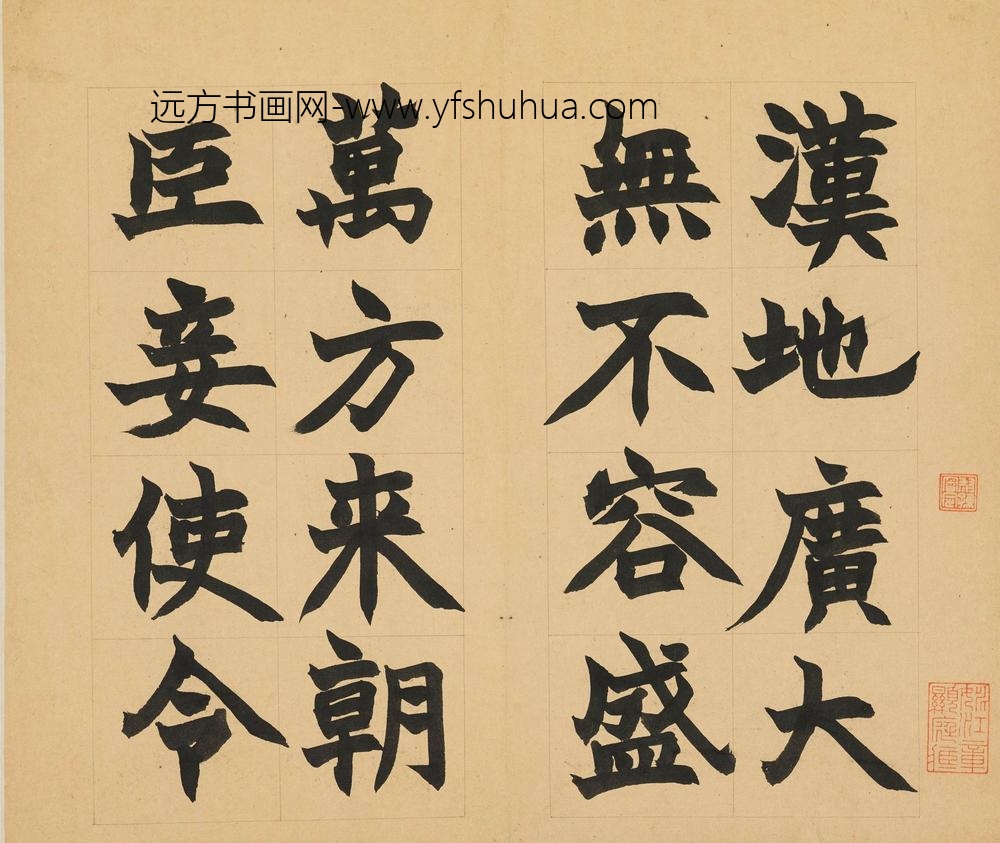 远方书画网-www.yfshuhua.com
漢地廣大
無不容盛
萬方来朝
臣妾使令